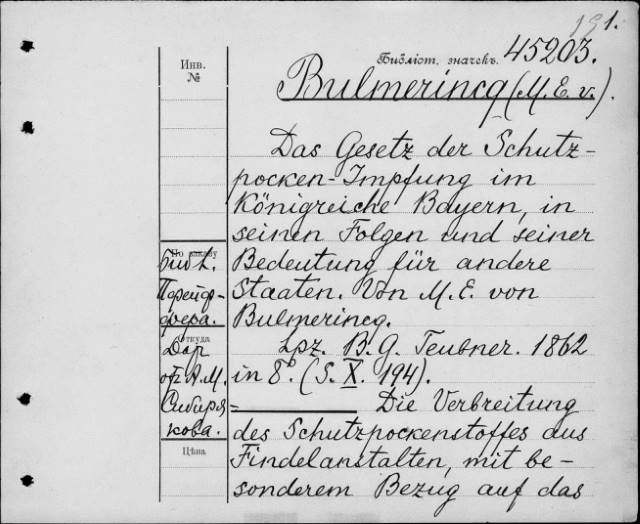 191.
Библіот. значекъ. 45203.
Инв.
№
Bulmerincq (M. E. v.).
Das Gesetz der Schutz-
pocken-Impfung im
Königreiche Bayern, in
seinen Folgen und seiner
Bedeutung für andere
Staaten. Von M. E. von
Bulmerincq.
Lpz. B. G. Teubner. 1862
in 8°. (S. X. 194).
Die Verbreitung
des Schutzpockenstoffes aus
Findelanstalten, mit be-
sonderem Bezug auf das
По каталогу
Библ.
Пфейф-
фера.
Откуда
Дар
от А. М.
Сибиря-
кова.
Цѣна.